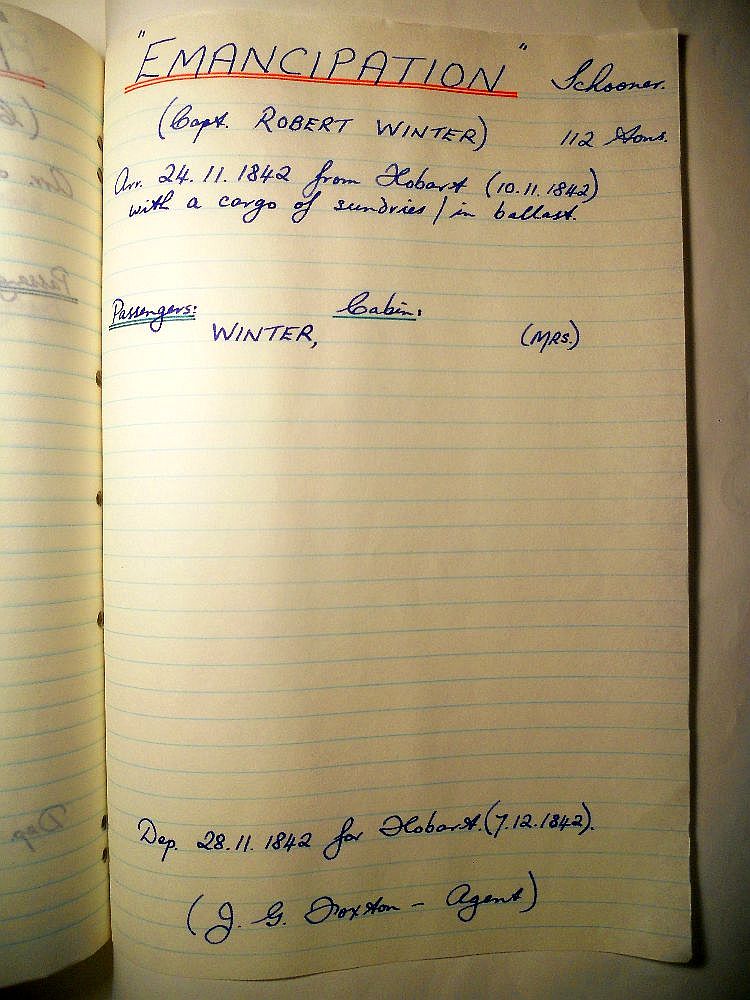 "EMANCIPATION" Schooner.
(Capt. ROBERT WINTER) 112 tons.
Arr. 24.11.1842 from Hobart (10.11.1842)
with a cargo of sundries / in ballast.
Passengers: Cabin:
WINTER, (MRS.)
Dep. 28.11.1842 for Hobart. (7.12.1842).
(J. G. Foxton - Agent)